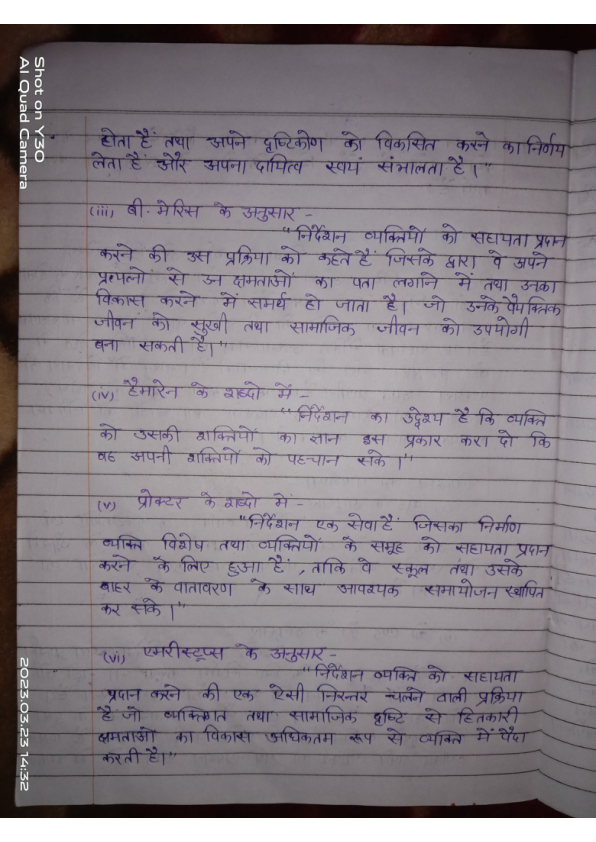 होता है तथा अपने दृष्टिकोण को विकसित करने का निर्णय
लेता है और अपना दायित्व स्वयं संभालता है।"
(iii) बी. मेरिस के अनुसार -
"निर्देशन व्यक्तियों को सहायता प्रदान
करने की उस प्रक्रिया को कहते हैं जिसके द्वारा वे अपने
प्रयत्नों से उन क्षमताओं का पता लगाने में तथा उनका
विकास करने में समर्थ हो जाता है। जो उनके वैयक्तिक
जीवन को सुखी तथा सामाजिक जीवन को उपयोगी
बना सकती है।"
(iv) हैमरिन के शब्दो में -
"निर्देशन का उद्देश्य है कि व्यक्ति
को उसकी शक्तियों का ज्ञान इस प्रकार करा दो कि
वह अपनी शक्तियों को पहचान सके।"
(v) प्रोक्टर के शब्दो में -
"निर्देशन एक सेवा है जिसका निर्माण
व्यक्ति विशेष तथा व्यक्तियों के समूह को सहायता प्रदान
करने के लिए हुआ है, ताकि वे स्कूल तथा उसके
बाहर के वातावरण के साथ आवश्यक समायोजन स्थापित
कर सके।"
(vi) एमरीस्टूप्स के अनुसार -
"निर्देशन व्यक्ति को सहायता
प्रदान करने की एक ऐसी निरन्तर चलने वाली प्रक्रिया
है जो व्यक्तिगत तथा सामाजिक दृष्टि से हितकारी
क्षमताओं का विकास अधिकतम रूप से व्यक्ति में पैदा
करती है।"
Shot on Y30
AI Quad Camera
2023.03.23 14:32